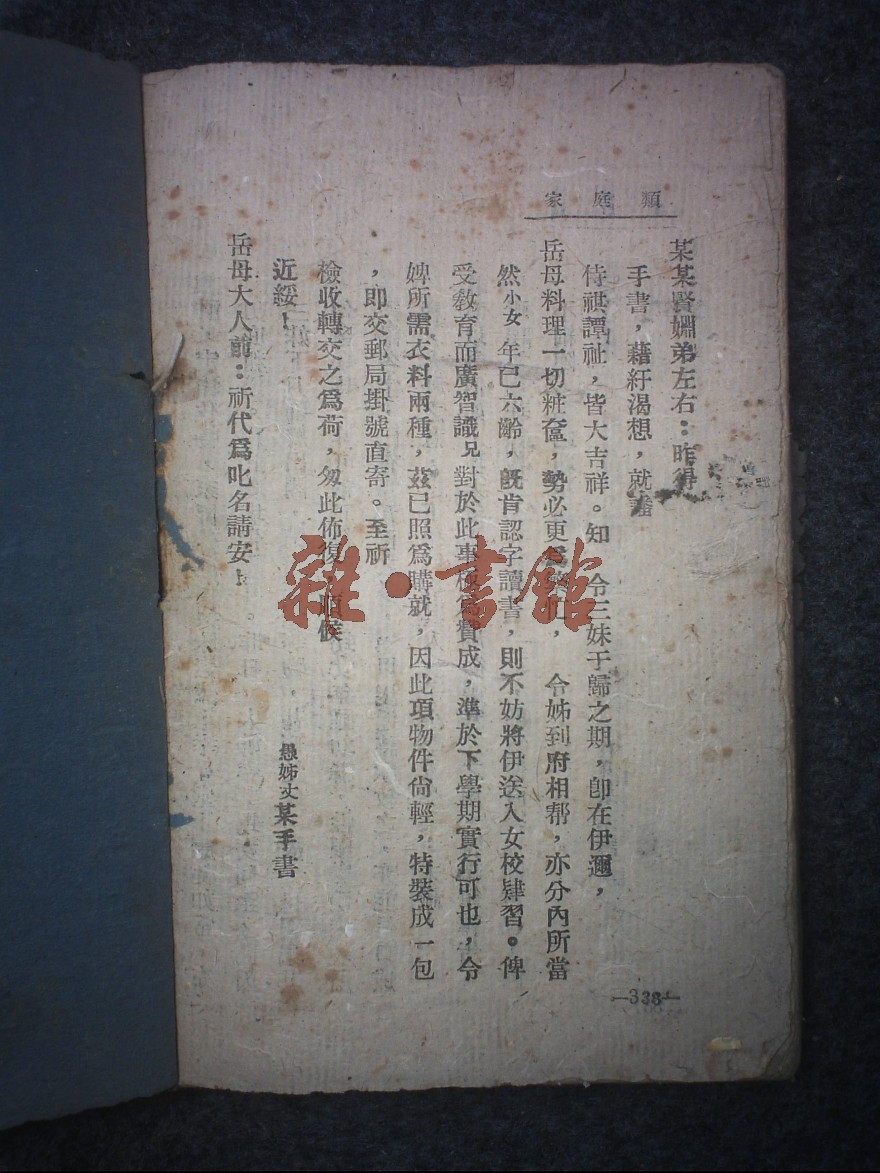 家庭類
某某賢姻弟左右：昨得
手書，藉紓渴想，就諗
侍祺譚祉，皆大吉祥。知　令三妹于歸之期，卽在伊邇，
岳母料理一切粧奩，勢必更爲　，　令姊到府相帮，亦分內所當
然小女年已六齡，旣肯認字讀書，則不妨將伊送入女校肄習。俾
受敎育而廣智識兄對於此事極爲贊成，準於下學期實行可也，令
婢所需衣料兩種，茲已照爲購就，因此項物件尙輕，特裝成一包
，卽交郵局掛號直寄。至祈
檢收轉交之爲荷，匆此佈復　順候
近綏！
岳母大人前：祈代爲叱名請安！
愚姊丈某手書
—338—
雜·書館